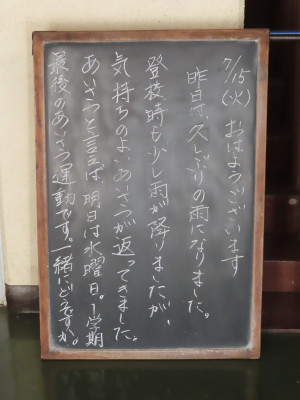 7/15(火) おはようございます
昨日は、久しぶりの雨になりました。
登校時も少し雨が降りましたが、
気持ちのよいあいさつが返ってきました。
あいさつと言えば、明日は水曜日。1学期
最後のあいさつ運動です。一緒にどうですか。